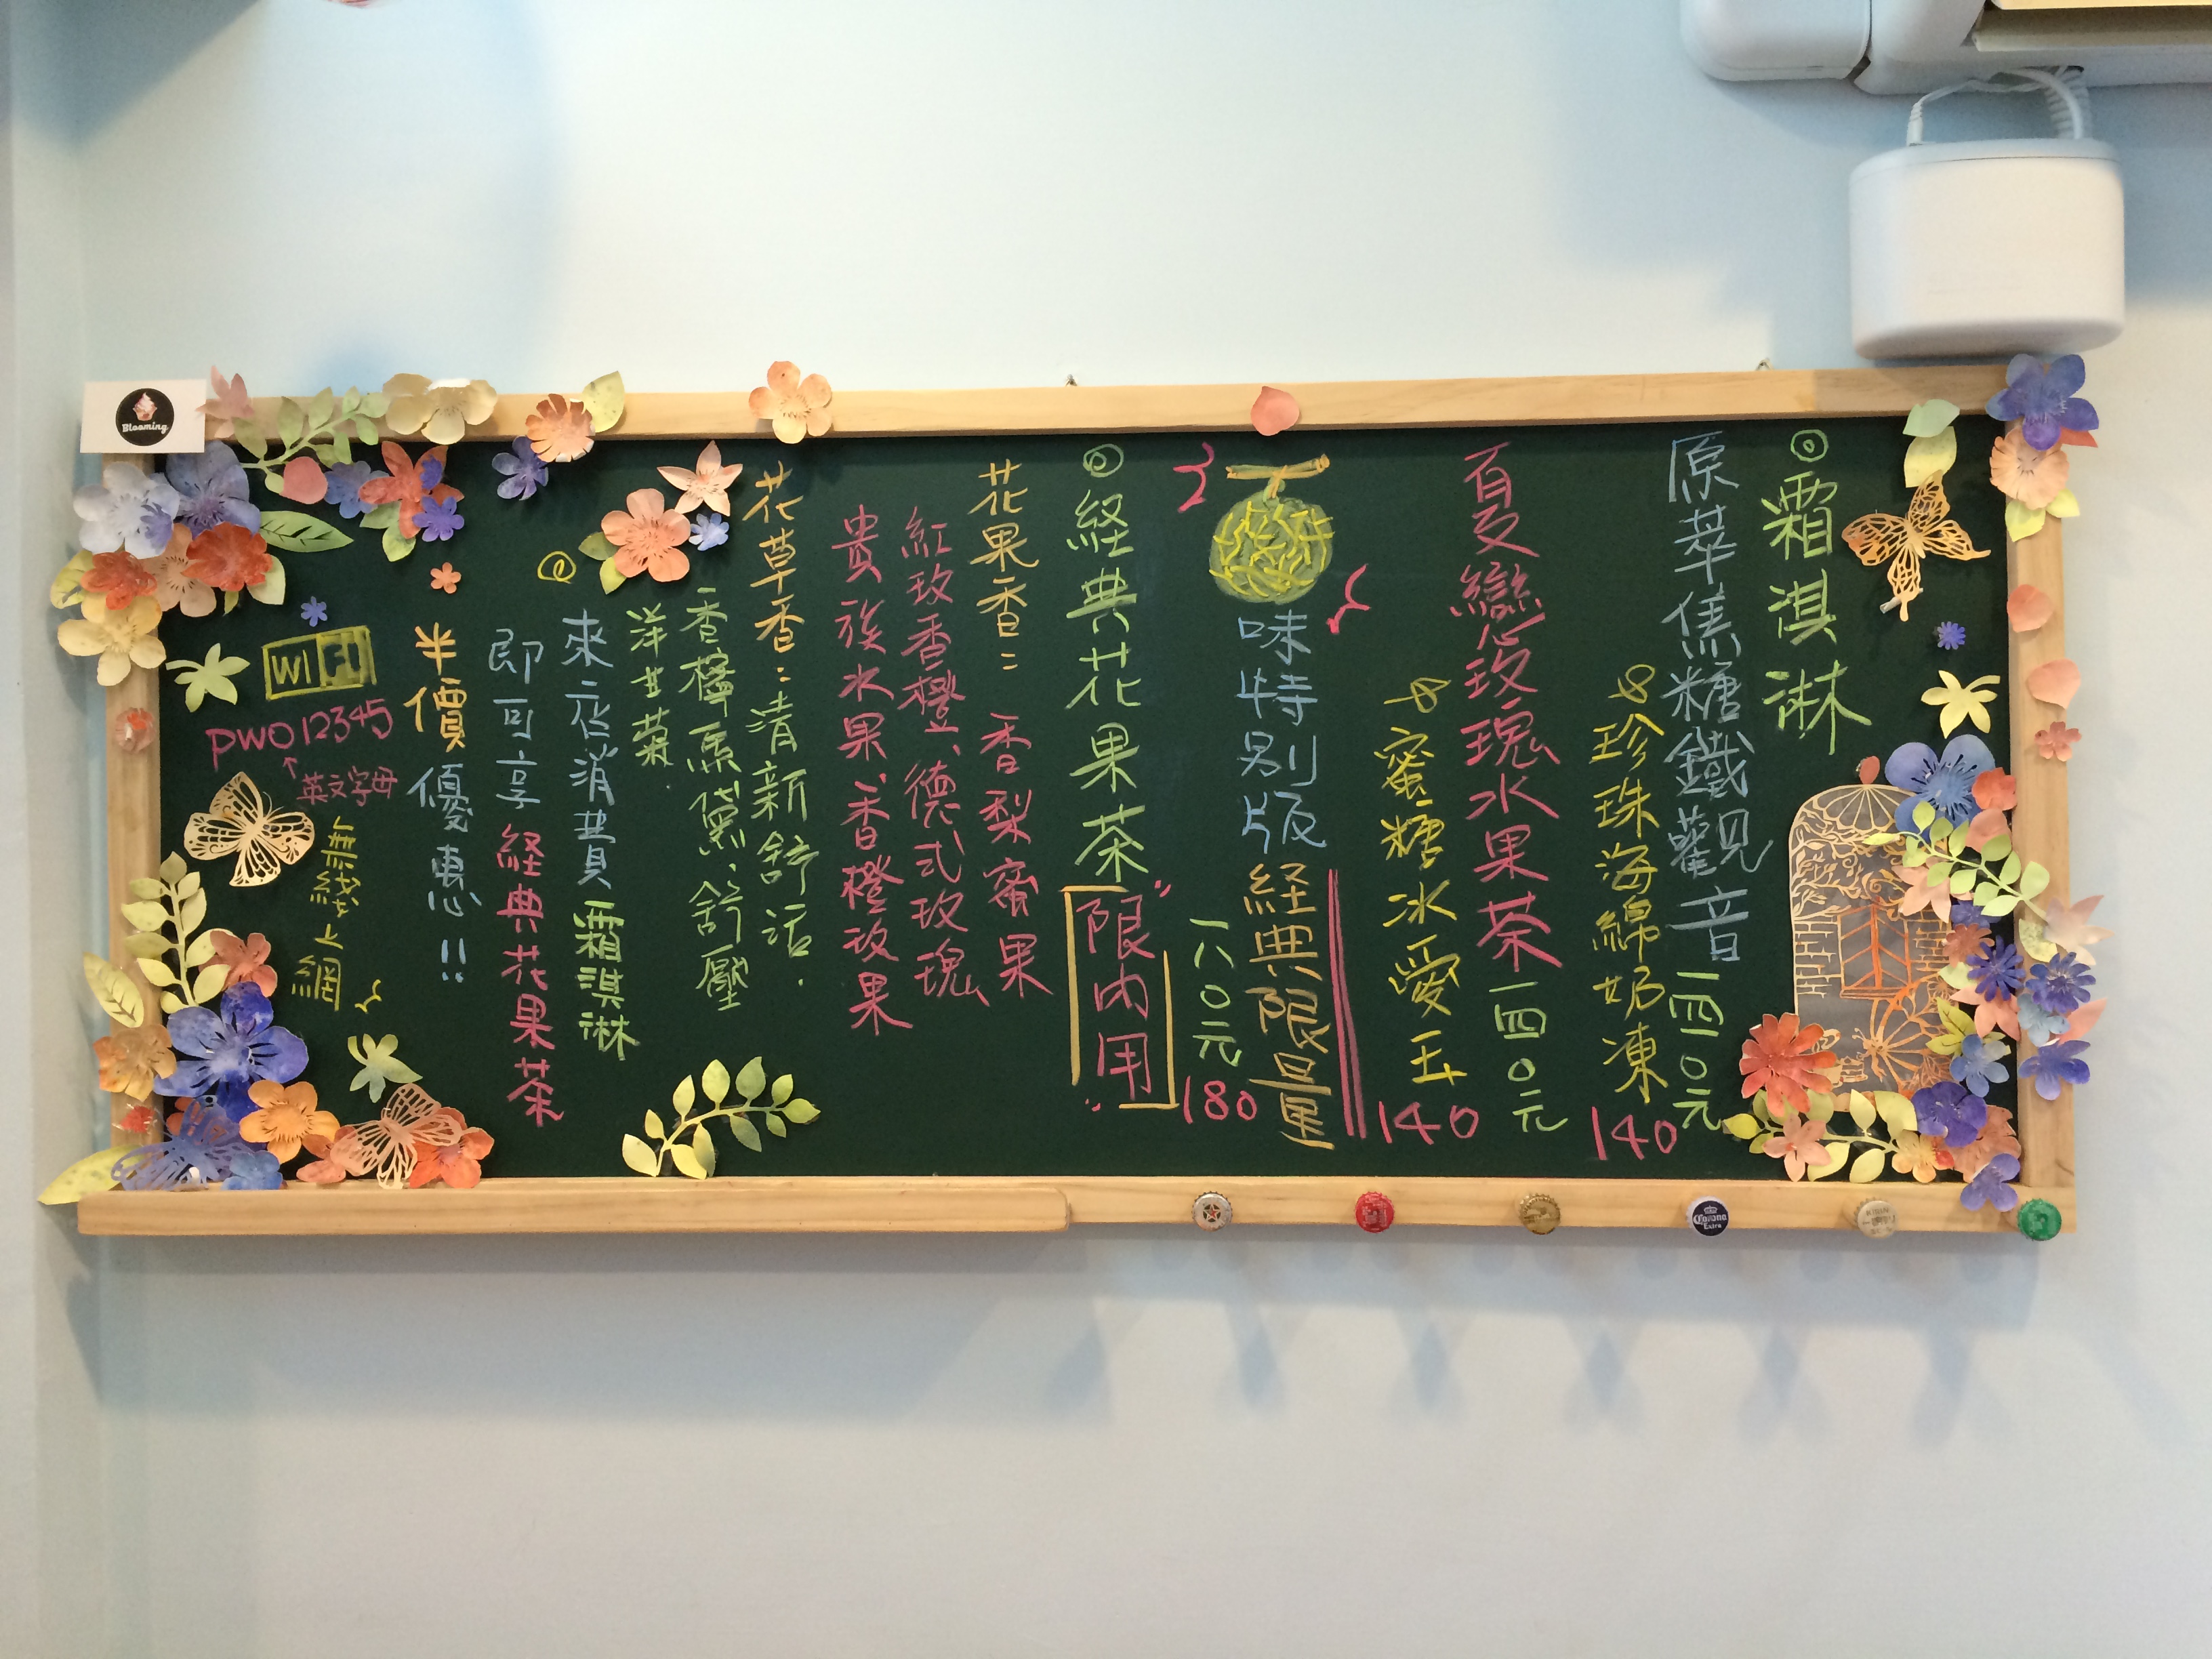 ◎霜淇淋
原萃焦糖鐵觀音一四〇元
珍珠海綿奶凍140
夏戀玫瑰水果茶一四〇元
蜜糖冰愛玉140
味特別版経典限量
一八〇元180
◎経典花果茶"限內用"
花果香:香梨蜜果
紅玫香橙、德式玫瑰
貴族水果、香橙玫果
花草香:清新舒活.
香檸馬黛.舒壓
洋甘菊
來店消費霜淇淋
即可享経典花果茶
半價優惠!!
WIFI
PWO12345
↑英文字母
無綫上網
Blooming
Corona
Extra